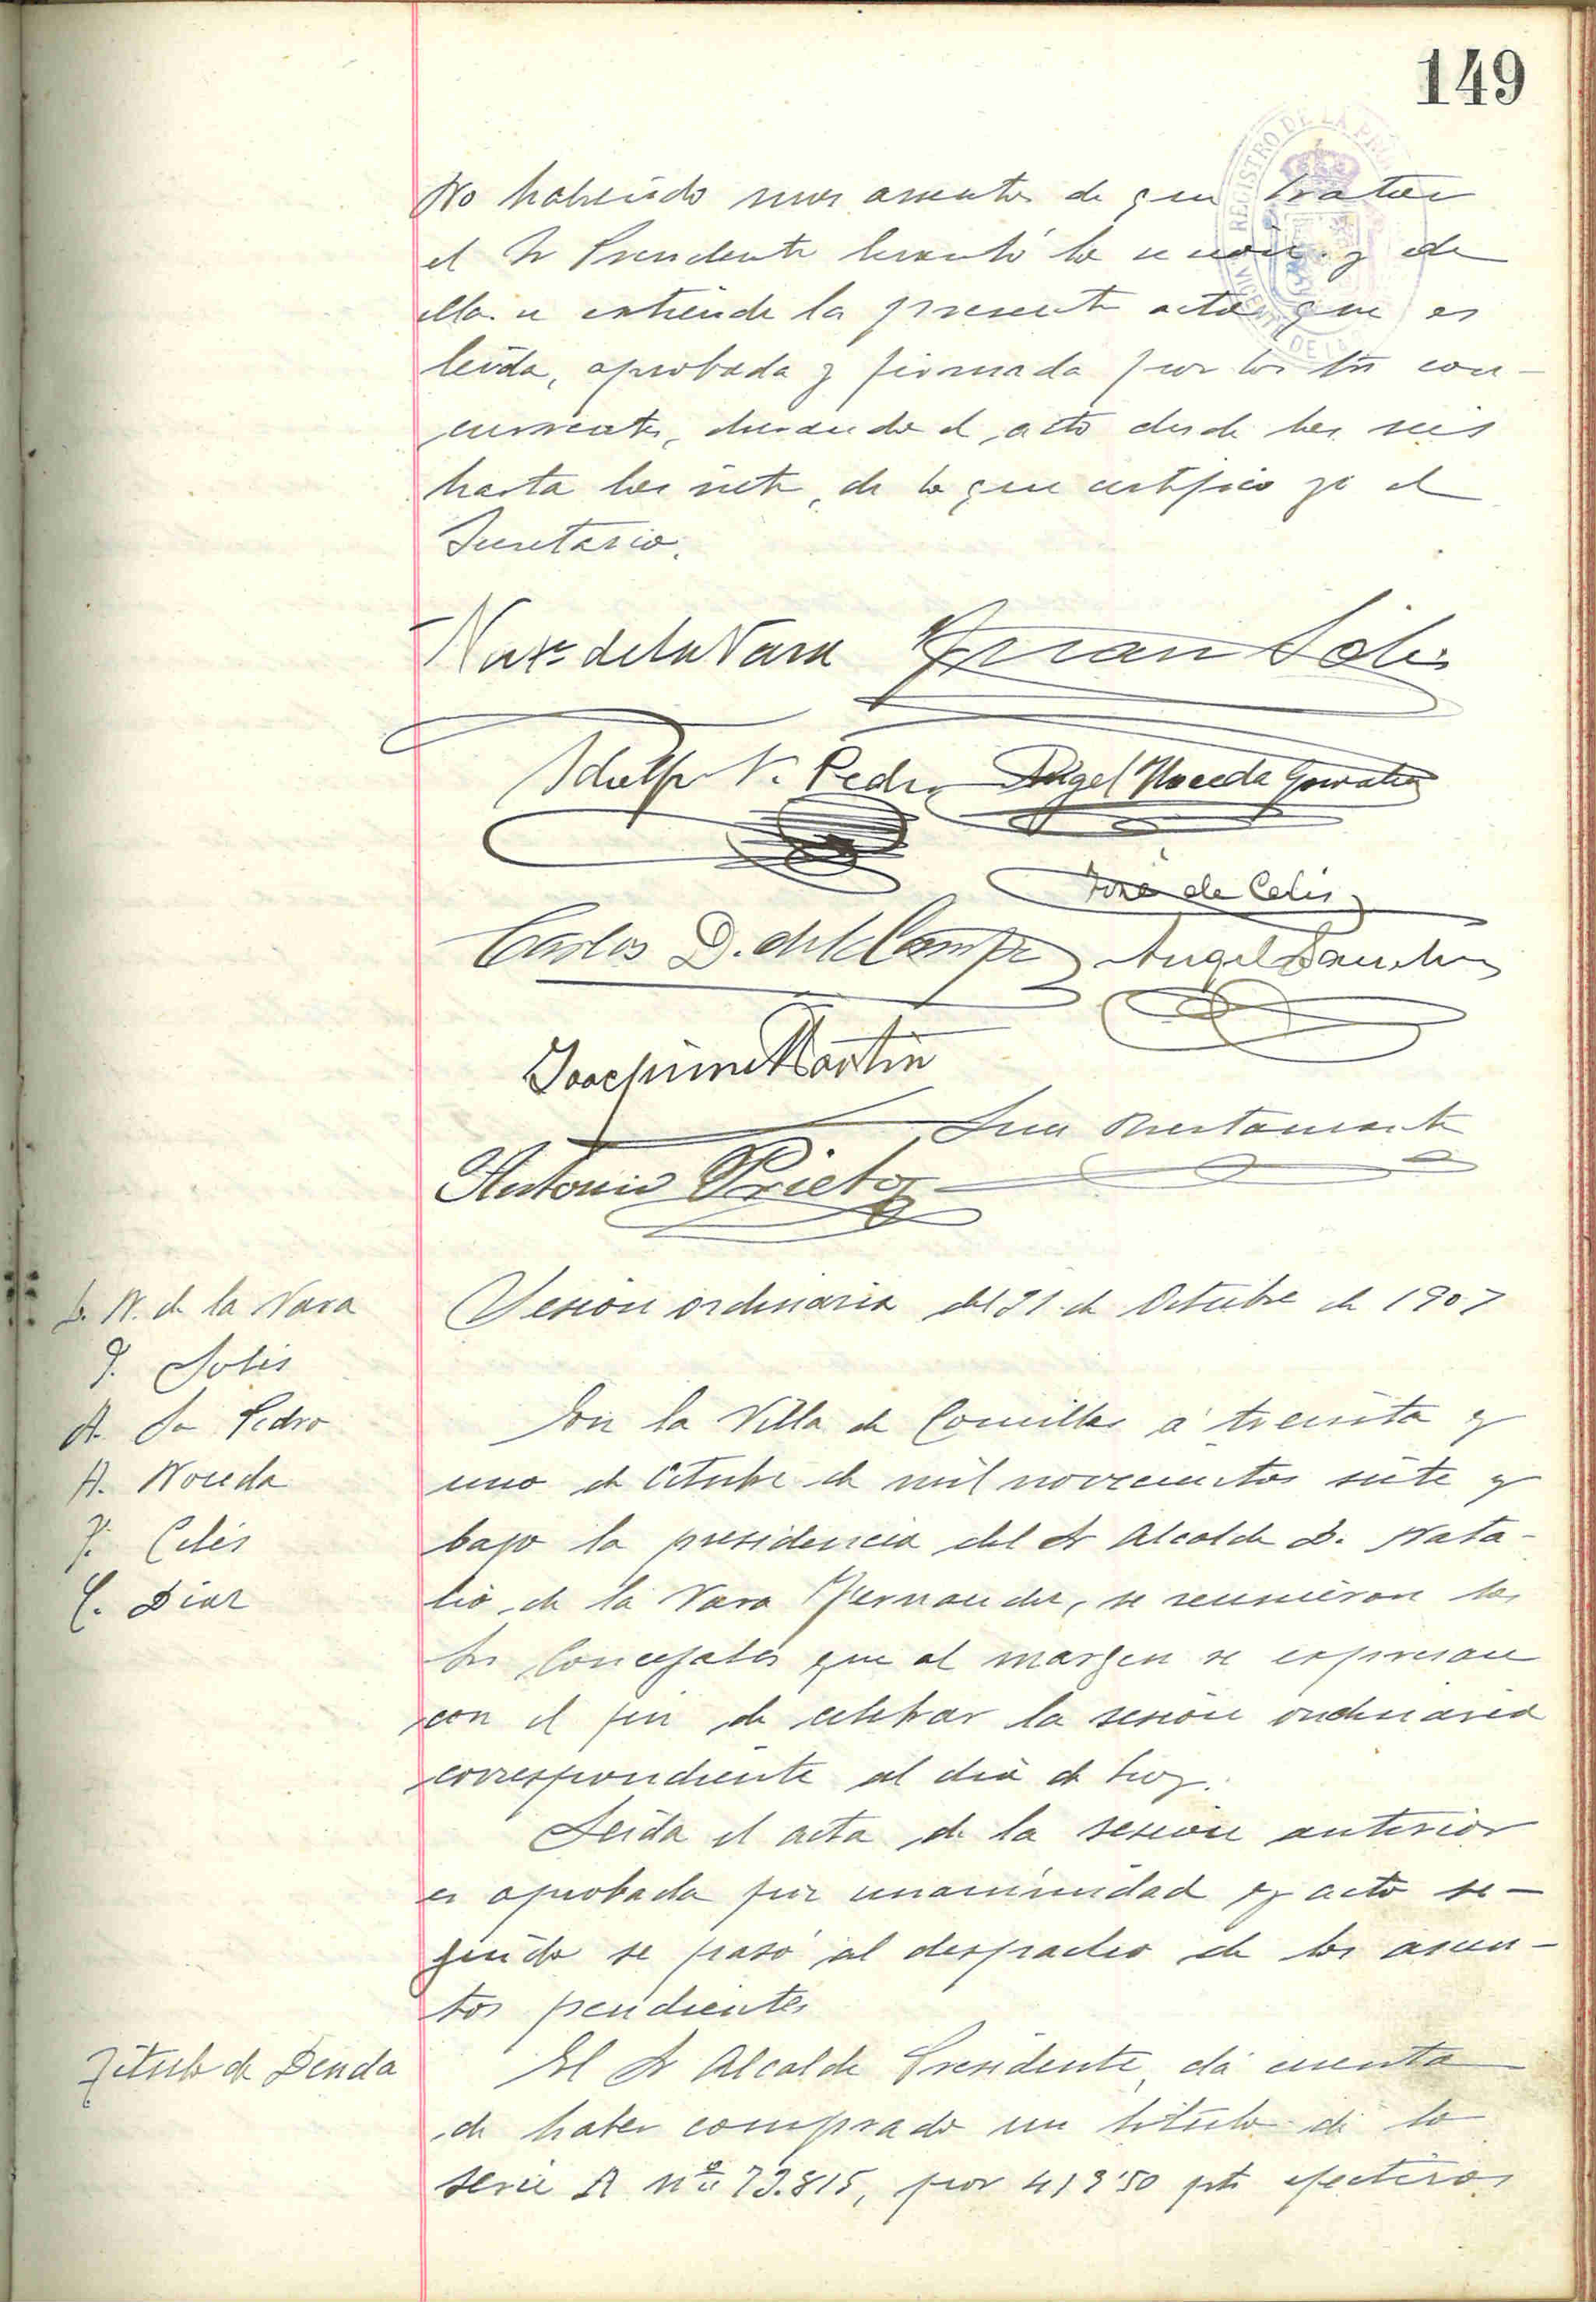 149
No habiendo mas asuntos de que tratar
el Sr Presidente levantó la sesion y de
ella se extiende la presente acta que es
leida, aprobada y firmada por los Srs con-
currentes, durando el acto desde las seis
hasta las siete, de lo que certifico yo el
Secretario.
de la Vara Juan Solis
Adolfo S. Pedro Angel Noceda Gonzalez
José de Celis
Carlos D. del Campo Angel Sanchez
Joaquin Martin
Bustamante
Antonio Prieto
D. N. de la Vara
J. Solis
A. Sn Pedro
A. Noceda
J. Celis
C. Diaz
Sesion ordinaria del 31 de Octubre de 1907
En la Villa de Comillas á treinta y
uno de Octubre de mil novecientos siete y
bajo la presidencia del Sr Alcalde D. Nata-
lio de la Vara Fernandez, se reunieron los
Srs Concejales que al margen se expresan
con el fin de celebrar la sesion ordinaria
correspondiente al dia de hoy.
Leida el acta de la sesion anterior
es aprobada por unanimidad y acto se-
guido se pasó al despacho de los asun-
tos pendientes
Titulo de Deuda
El Sr Alcalde Presidente, dá cuenta
de haber comprado un titulo de la
serie A nº 73.815, por 413'50 pts efectivas